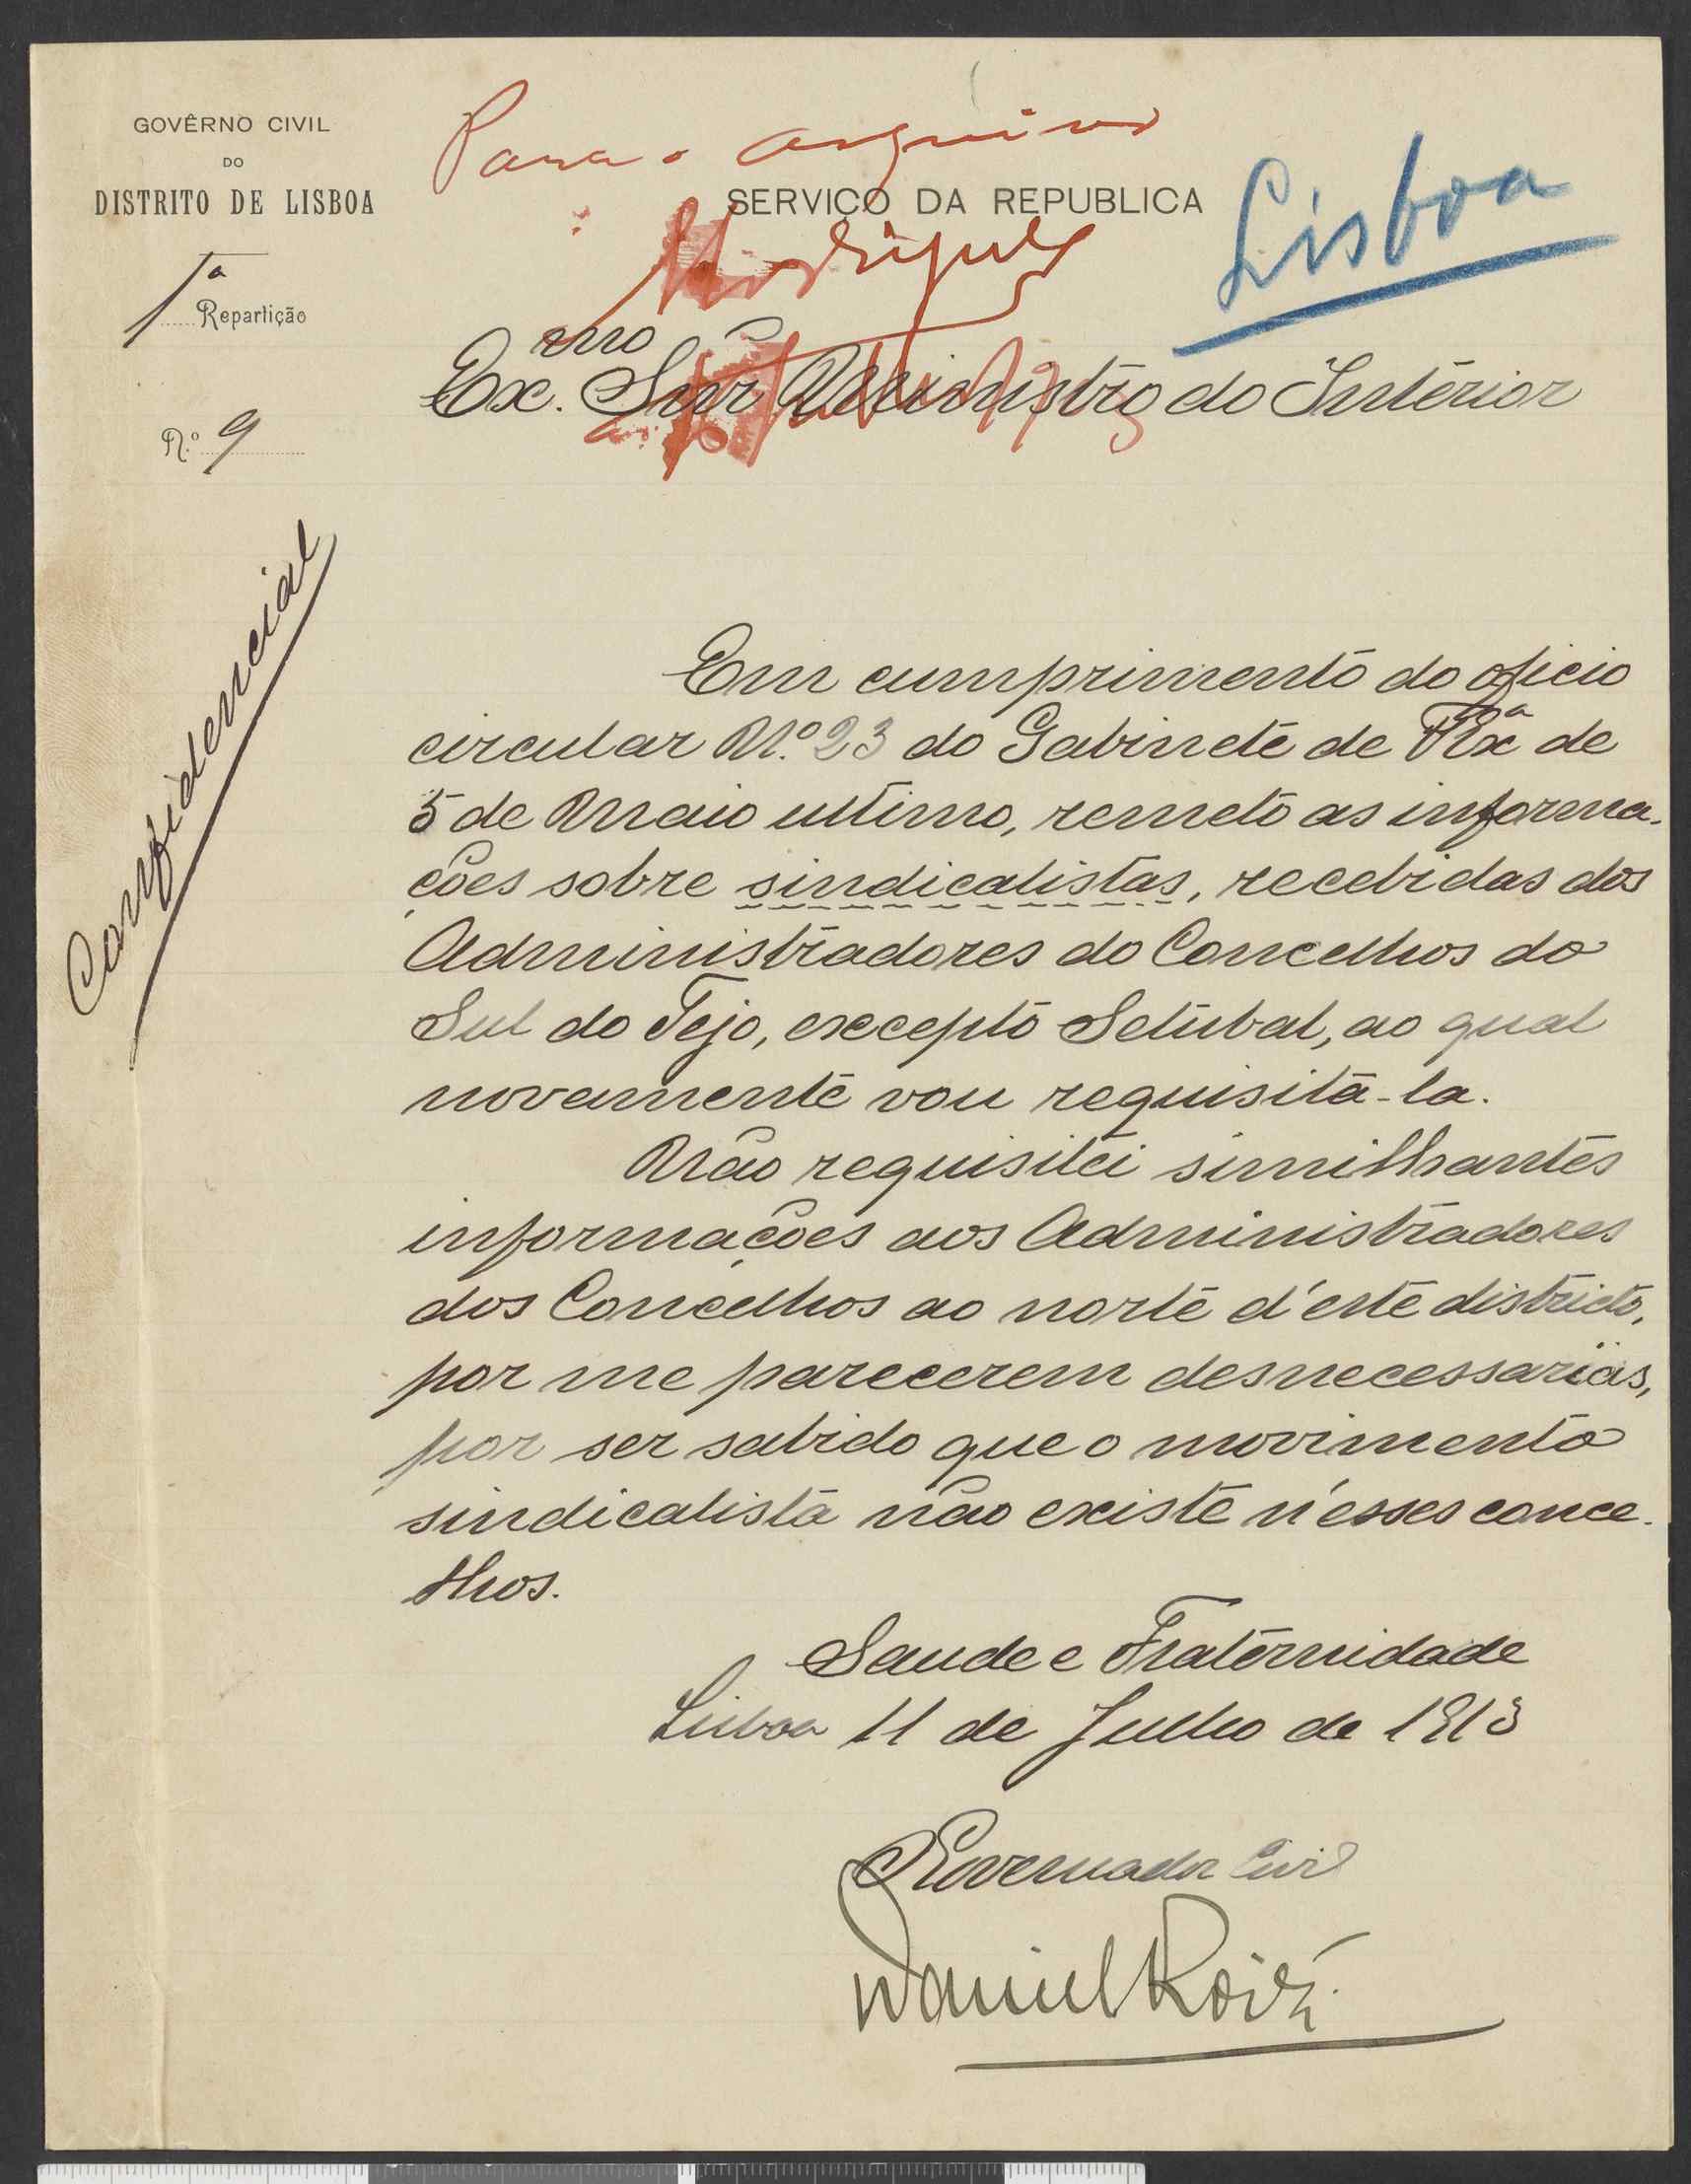 GOVÊRNO CIVIL
DO
DISTRITO DE LISBOA
1ª Repartição
N.º 9
Confidencial
Para o arquivo
SERVIÇO DA REPUBLICA
Rodrigues
Lisboa
Ex.mo Snr Ministro do Interior
Em cumprimento do oficio
circular N.º 23 do Gabinete de V. Exª de
5 de Maio ultimo, remeto as informa-
ções sobre sindicalistas, recebidas dos
Administradores do Concelhos do
Sul do Tejo, excepto Setúbal, ao qual
novamente vou requisitá-la.
Não requisitei similhantes
informações aos Administradores
dos Concelhos ao norte d'este districto,
por me parecerem desnecessarias,
por ser sabido que o movimento
sindicalista não existe n'esses conce-
lhos.
Saude e Fraternidade
Lisboa 11 de Julho de 1913
O Governador Civil
Daniel Roiz